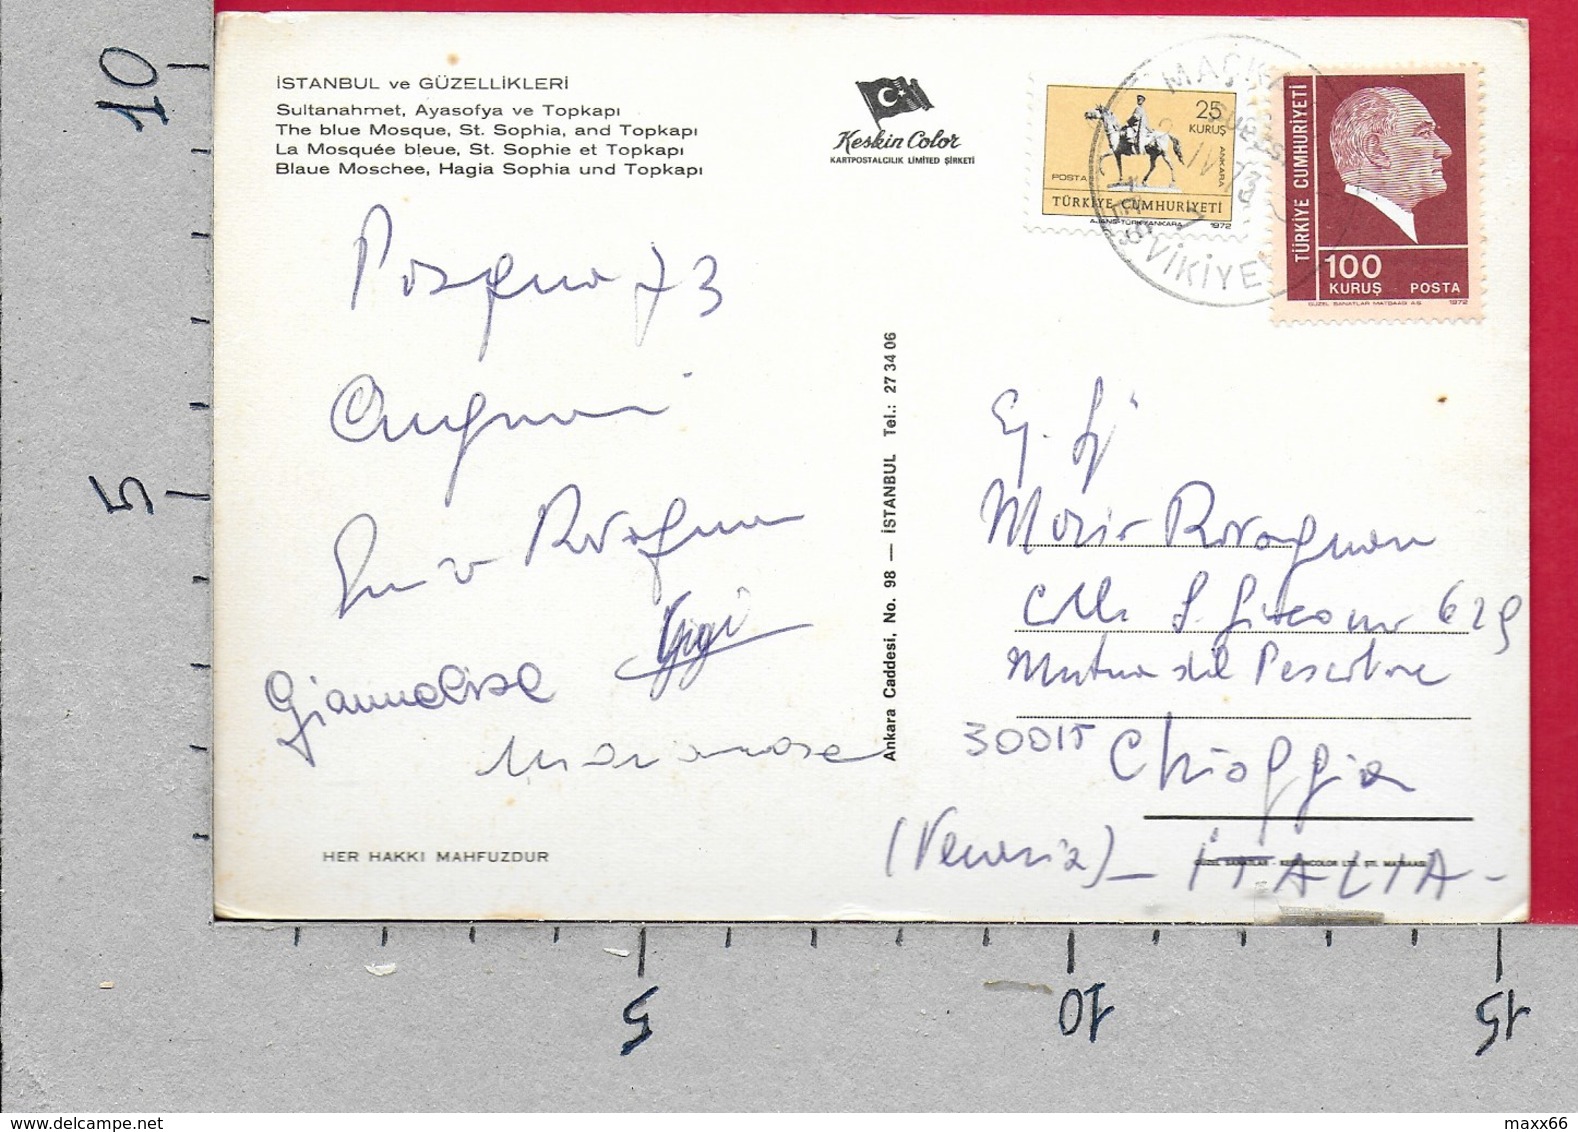 10
5
İSTANBUL ve GÜZELLİKLERİ
Sultanahmet, Ayasofya ve Topkapı
The blue Mosque, St. Sophia, and Topkapı
La Mosquée bleue, St. Sophie et Topkapı
Blaue Moschee, Hagia Sophia und Topkapı
Keskin Color
KARTPOSTALCILIK LIMITED ŞİRKETİ
25
KURUŞ
ANKARA
POSTA
TÜRKİYE CUMHURİYETİ
AJANS-TÜRK/ANKARA 1972
MAÇKA
IV 73
TÜRKİYE CUMHURİYETİ
100
KURUŞ POSTA
GÜZEL SANATLAR MATBAASI A.Ş. 1972
Pasqua 73
Auguri
Rovagnan
Gigi
Giannalisa
Mariarosa
HER HAKKI MAHFUZDUR
Ankara Caddesi, No. 98 — İSTANBUL Tel.: 27 34 06
Eg. Sig
Mario Rovagnan
Calle S. Giacomo 629
Mutua del Pescatore
30015 Chioggia
(Venezia) - ITALIA -
5
10
15
https://www.delcampe.net
maxx66